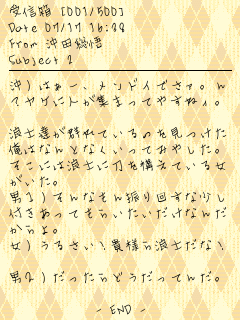 受信箱 [001/500]
Date 07/17 16:38
From 沖田総悟
Subject 2
沖)はぁー、メンドイでさァ。ん
でヤケに人が集まってやすねィ。
浪士達が群れているのを見つけた
俺はなんとなくいってみやした。
そこには浪士に刀を構えている女
がいた。
男1)すんなそん振り回すな少し
付きあってもらいたいだけなんだ
からよ。
女)うるさい!貴様ら浪士だな!
男2)だったらどうだってんだ。
- END -